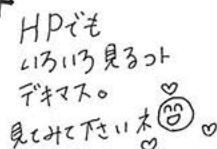 HPでも
いろいろ見るコト
デキマス。
見てみて下さいネ